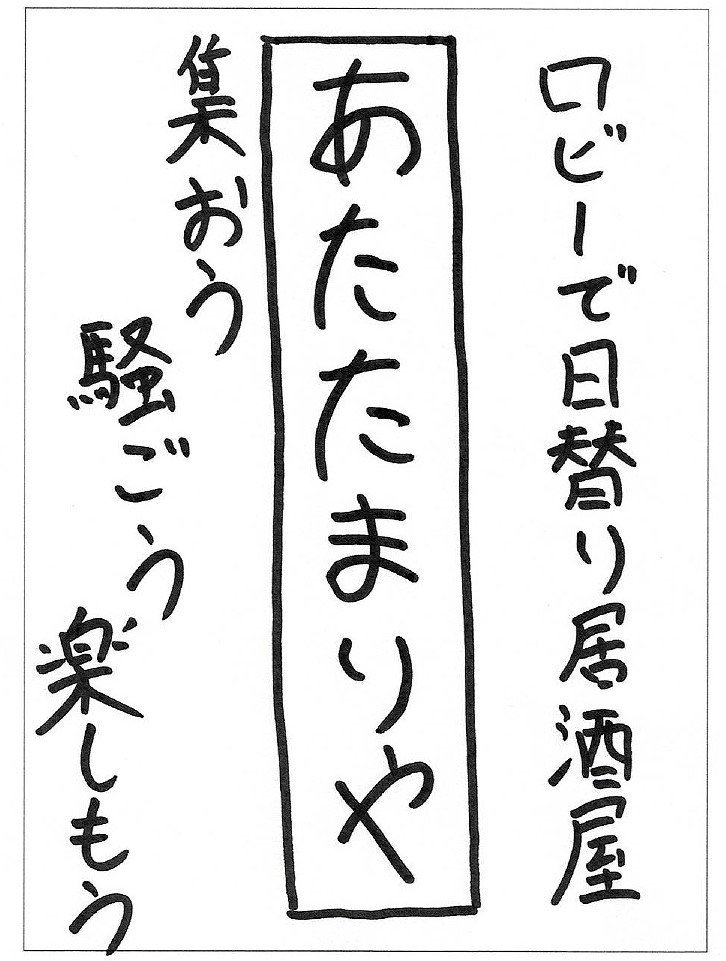 ロビーで日替り居酒屋
あたたまりや
集おう
騒ごう
楽しもう